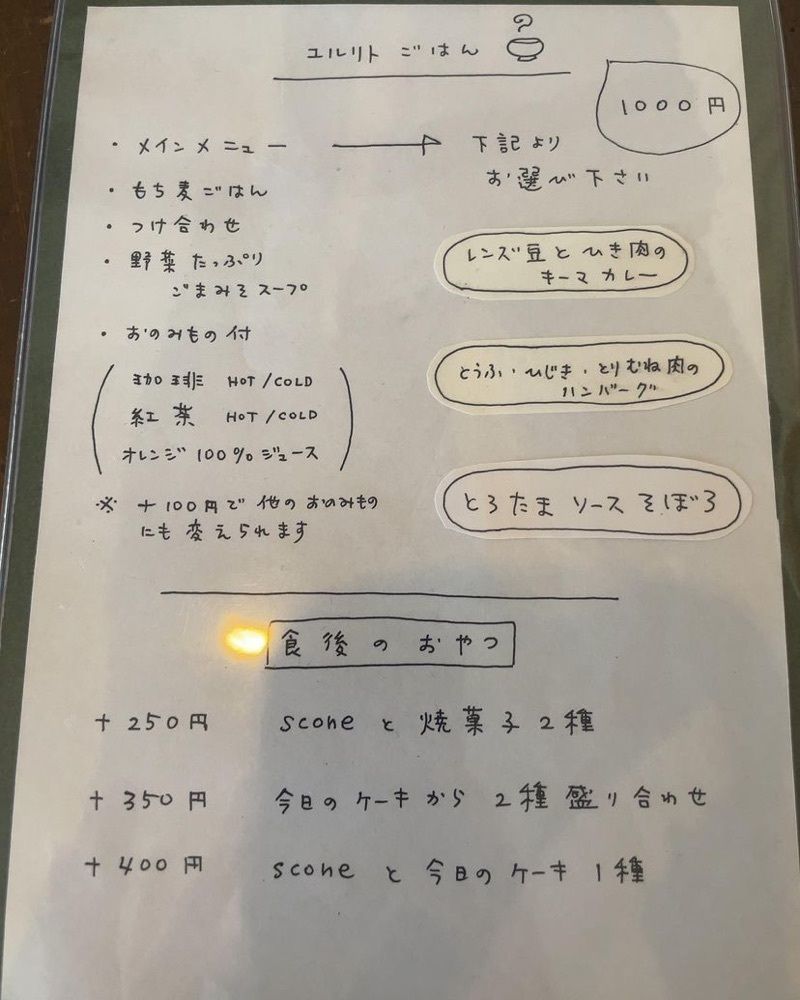 ユルリト ごはん
1000円
・メインメニュー → 下記より
お選び下さい
・もち麦ごはん
・つけ合わせ
・野菜たっぷり
ごまみそスープ
・おのみもの付
珈琲 HOT/COLD
紅茶 HOT/COLD
オレンジ100%ジュース
※ +100円で他のおのみもの
にも変えられます
レンズ豆とひき肉の
キーマカレー
とうふ・ひじき・とりむね肉の
ハンバーグ
とろたまソースそぼろ
食後のおやつ
+250円 sconeと焼菓子2種
+350円 今日のケーキから2種盛り合わせ
+400円 sconeと今日のケーキ1種